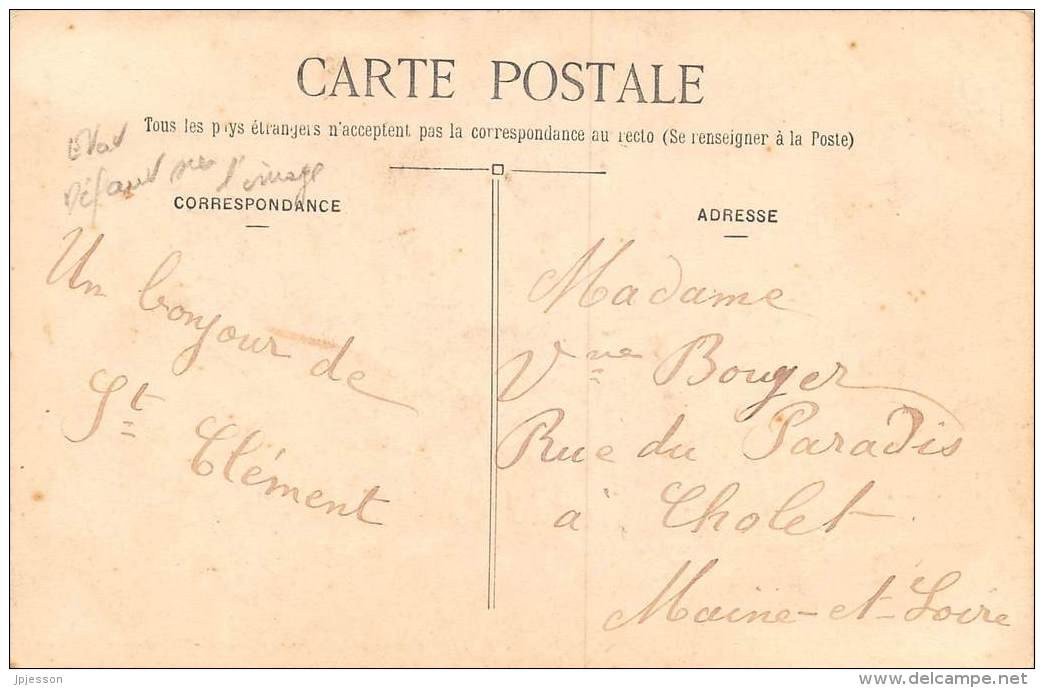 CARTE POSTALE
Tous les pays étrangers n'acceptent pas la correspondance au recto (Se renseigner à la Poste)
État
Défaut sur l'image
CORRESPONDANCE
Un bonjour de
St Clément
ADRESSE
Madame
Vve Bouyer
Rue du Paradis
à Cholet
Maine-et-Loire
jpjesson
www.delcampe.net